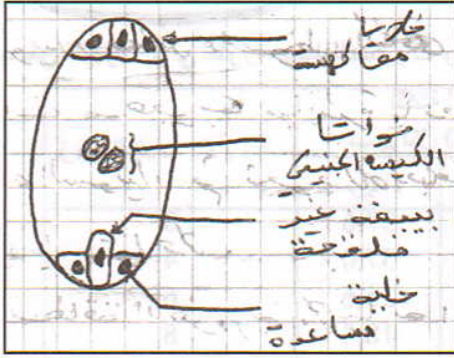 خلايا
مقاطبية
نواتا
الكيس الجنيني
بييضة غير
ملقحة
خلية
مساعدة